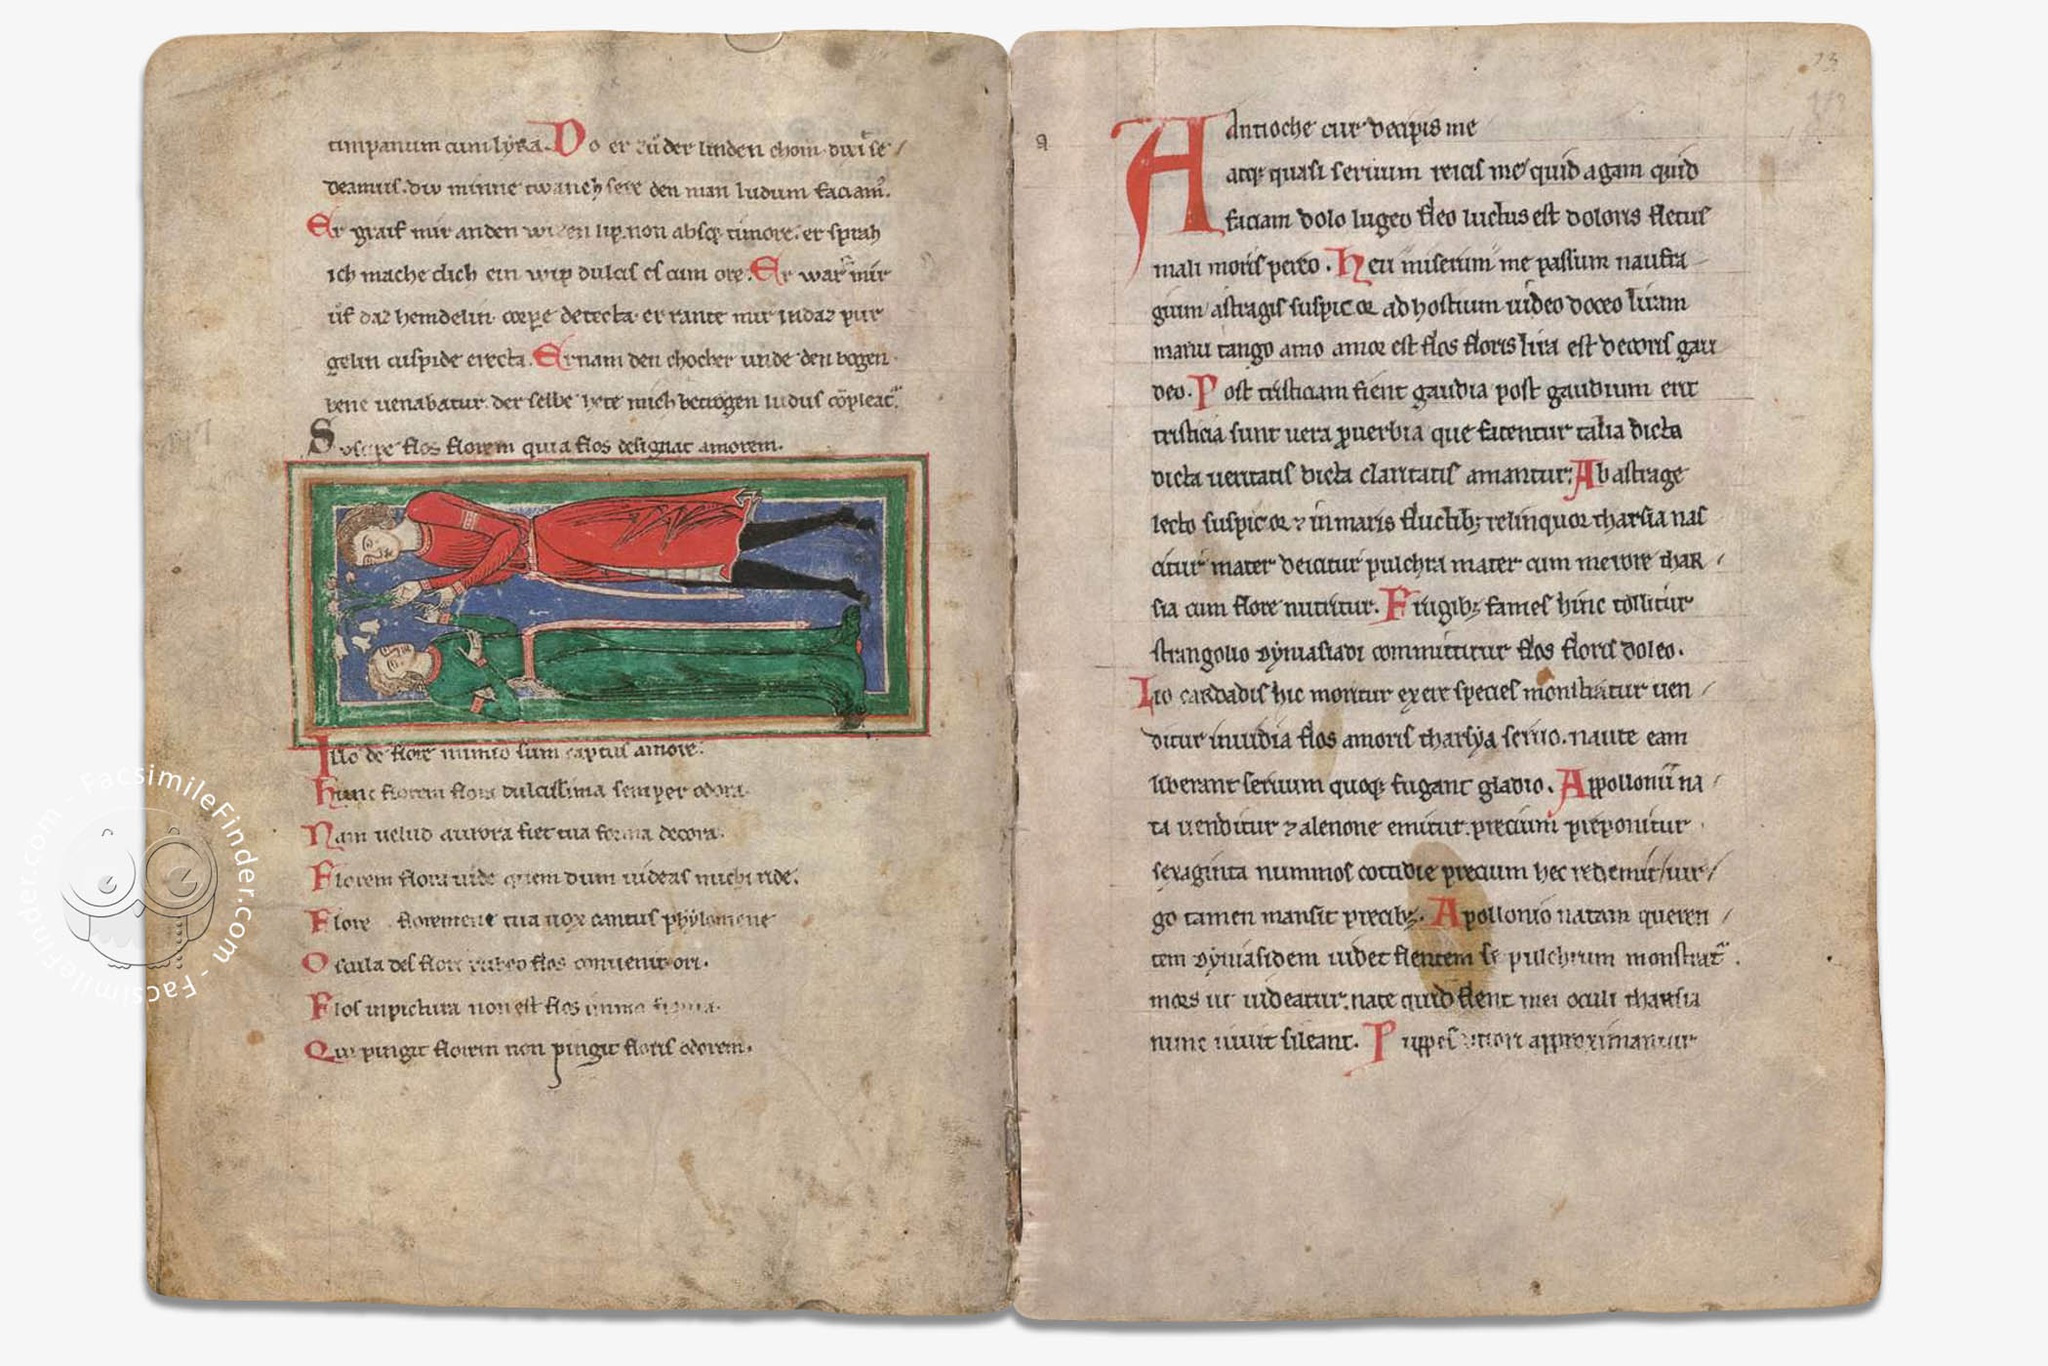 timpanum cum lyra. Do er zů der linden chom dixi se
deamus. div minne twanch sere den man ludum faciam᷑.
Er graif mir an den wizen lip. non absq; timore. er sprah
ich mache dich ein wip dulcis es cum ore. Er warf mir
uf daz hemdelin. corpe detecta. er rante mir in daz pur
gelin cuspide erecta. Er nam den chocher unde den bogen.
bene uenabatur. der selbe hete mich betrogen ludus cōpleat᷑.
Suscipe flos florem quia flos designat amorem.
Illo de flore nimio sum captus amore.
Hunc florem flora dulcissima semper odora.
Nam uelud aurora fiet tua forma decora.
Florem flora uide quem dum uideas michi ride.
Flore tua uox cantus phylomene
Oscula des flori rubeo flos conuenit ori.
Flos in pictura non est flos immo figura.
Qui pingit florem non pingit floris odorem.
23
a
Antioche cur decipis me
atq; quasi seruum reicis me quid agam quid
faciam dolo lugeo fleo luctus est doloris fletus
mali moris pereo. Heu miserum me passum naufra
gium astragis suspicor ad hostium uideo doceo liram
manu tango amo amor est flos floris lira est decoris gau
deo. Post tristiciam fient gaudia post gaudium erit
tristicia sunt uera puerbia que fatentur talia dicta
dicta ueritatis dicta claritatis amantur. Ab astrage
lecto suspicor ⁊ in maris fluctib; relinquor tharsia nas
citur mater deicitur pulchra mater cum merore thar
sia cum flore nutritur. Frugib; fames hinc tollitur
strangolio dyniasiadi committitur flos floris doleo.
hic moritur exeir species monstratur uen
ditur inuidia flos amoris tharsya seruo. naute eam
liberant seruum quoq; fugant gladio. Appollonii na
ta uenditur ⁊ a lenone emitur. precium preponitur
sexaginta nummos cottidie precium hec redemit uir
go tamen mansit precib;. Apollonio natam queren
tem dyniasidem uidet flentem se pulchrum monstrat᷑.
mors ut uideatur. nate quid flent mei oculi tharsia
nunc uiuit sileant. Puppes littori approximantur
FacsimileFinder.com - FacsimileFinder.com -